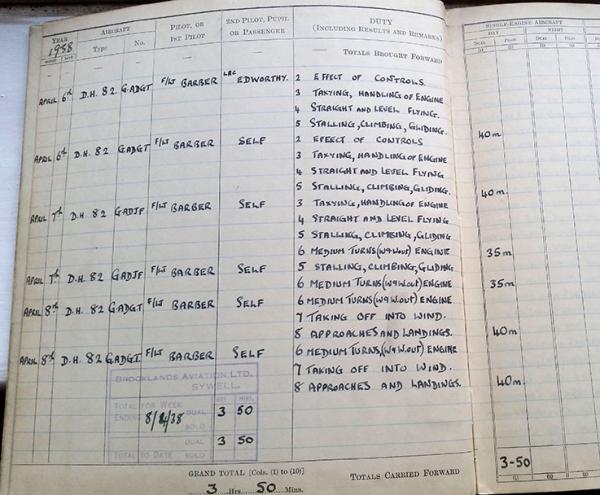 YEAR AIRCRAFT PILOT, OR 2ND PILOT, PUPIL DUTY SINGLE-ENGINE AIRCRAFT
1938 Type No. 1ST PILOT OR PASSENGER (INCLUDING RESULTS AND REMARKS) DAY NIGHT
DUAL PILOT DUAL PILOT
— — — — — TOTALS BROUGHT FORWARD
APRIL 6th D.H. 82 GADGT F/LT BARBER LAC EDWORTHY. 2 EFFECT OF CONTROLS.
3 TAXYING, HANDLING OF ENGINE
4 STRAIGHT AND LEVEL FLYING.
5 STALLING, CLIMBING, GLIDING. 40m
APRIL 6th D.H. 82 GADGT F/LT BARBER SELF 2 EFFECT OF CONTROLS
3 TAXYING, HANDLING OF ENGINE
4 STRAIGHT AND LEVEL FLYING
5 STALLING, CLIMBING, GLIDING. 40m
APRIL 7th D.H. 82 GADJF F/LT BARBER SELF 3 TAXYING, HANDLING OF ENGINE
4 STRAIGHT AND LEVEL FLYING
5 STALLING, CLIMBING, GLIDING
6 MEDIUM TURNS (W & W.OUT) ENGINE 35m
APRIL 7th D.H. 82 GADJF F/LT BARBER SELF 5 STALLING, CLIMBING, GLIDING
6 MEDIUM TURNS (W & W.OUT) ENGINE 35m
APRIL 8th D.H. 82 GADGT F/LT BARBER SELF 6 MEDIUM TURNS (W & W.OUT) ENGINE
7 TAKING OFF INTO WIND.
8 APPROACHES AND LANDINGS. 40m
APRIL 8th D.H. 82 GADGT F/LT BARBER SELF 6 MEDIUM TURNS, (W & W.OUT) ENGINE
7 TAKING OFF INTO WIND.
8 APPROACHES AND LANDINGS. 40m
BROOKLANDS AVIATION LTD.
SYWELL.
HRS. MINS.
TOTAL FOR WEEK DUAL 3 50
ENDING 8/4/38 SOLO
DUAL 3 50
TOTAL TO DATE SOLO
3-50
GRAND TOTAL [Cols. (1) to (10)] TOTALS CARRIED FORWARD
3 Hrs. 50 Mins.